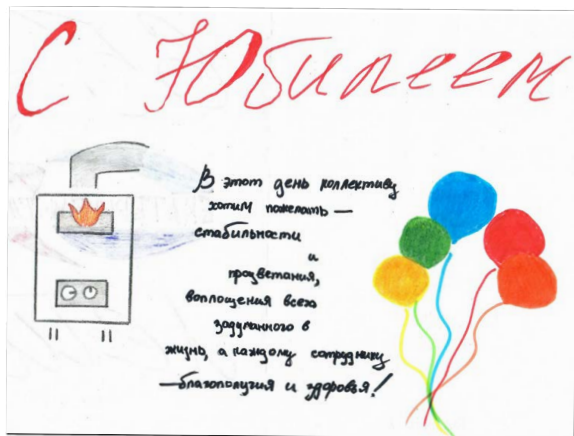 С Юбилеем
В этот день коллективу
хотим пожелать —
стабильности
и
процветания,
воплощения всего
задуманного в
жизнь, а каждому сотруднику
— благополучия и здоровья!